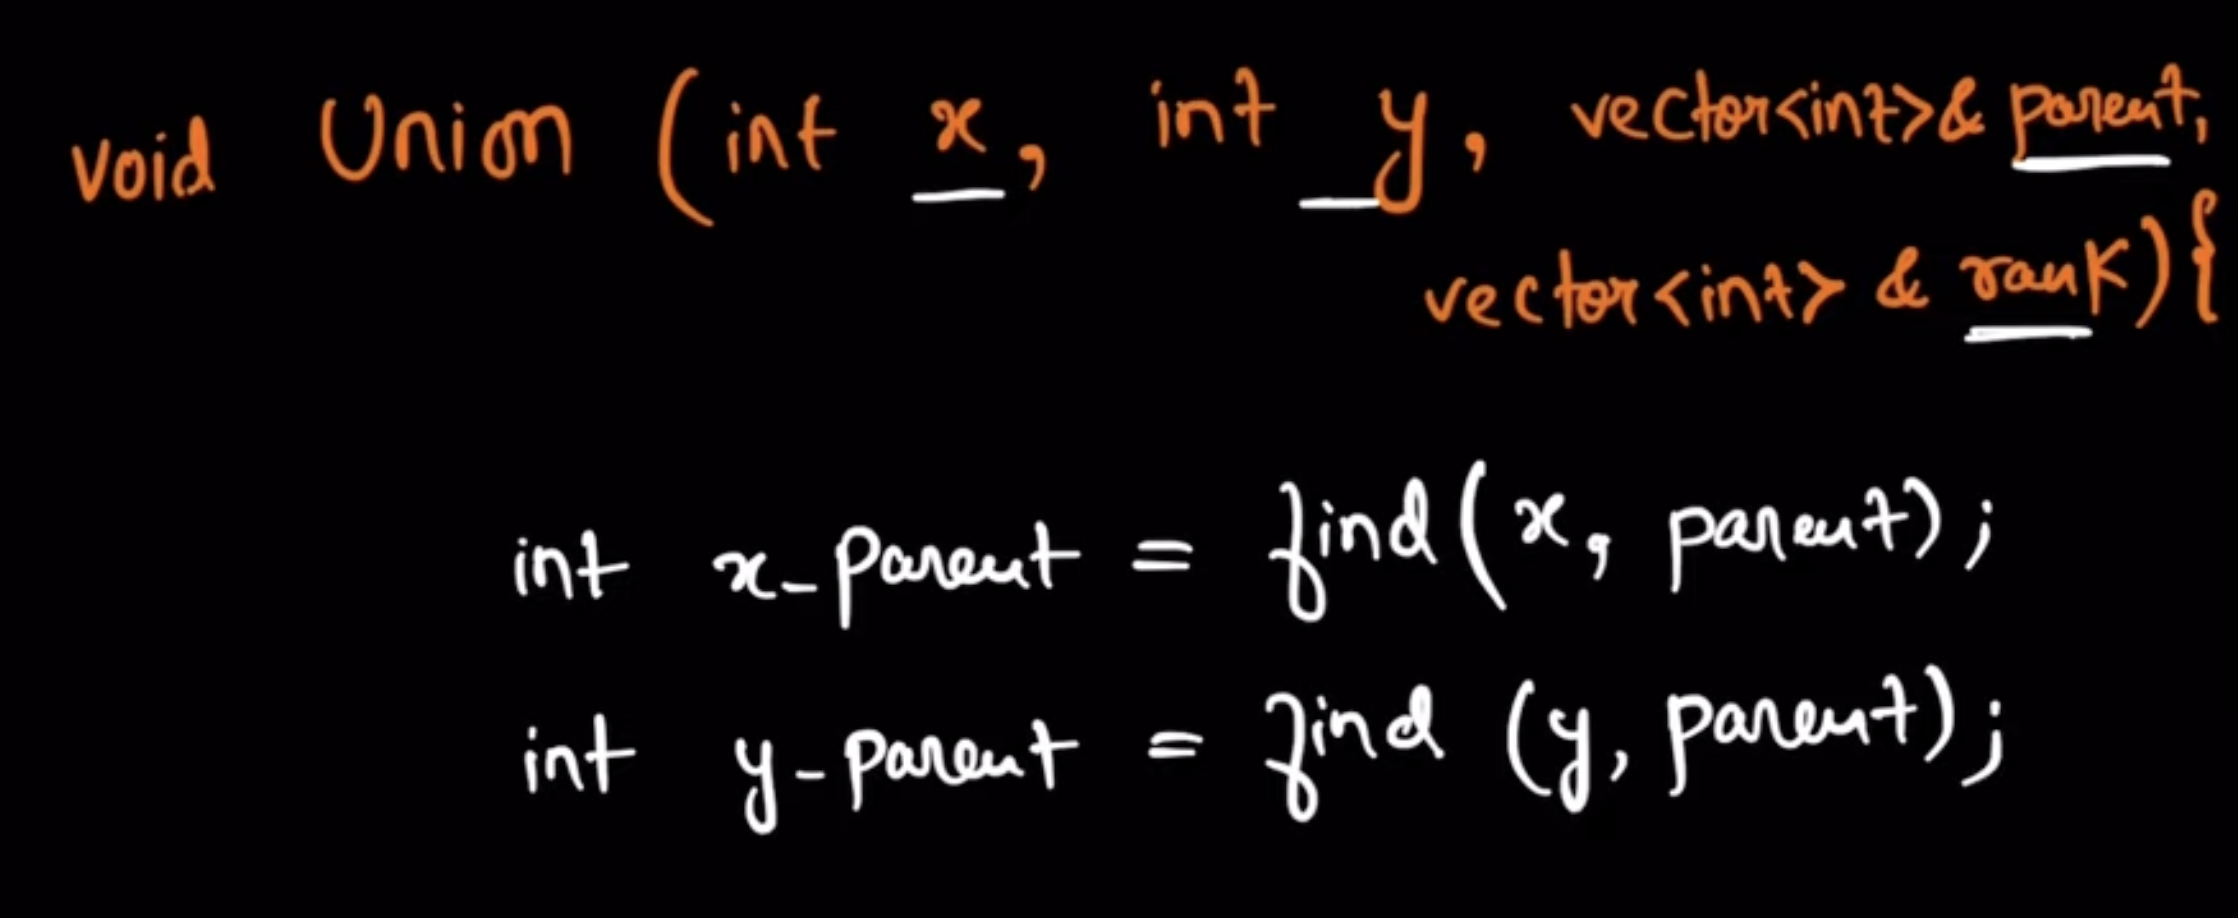 void Union (int x, int y, vector<int>& parent,
vector<int> & rank){
int x_parent = find(x, parent);
int y-parent = find (y, parent);